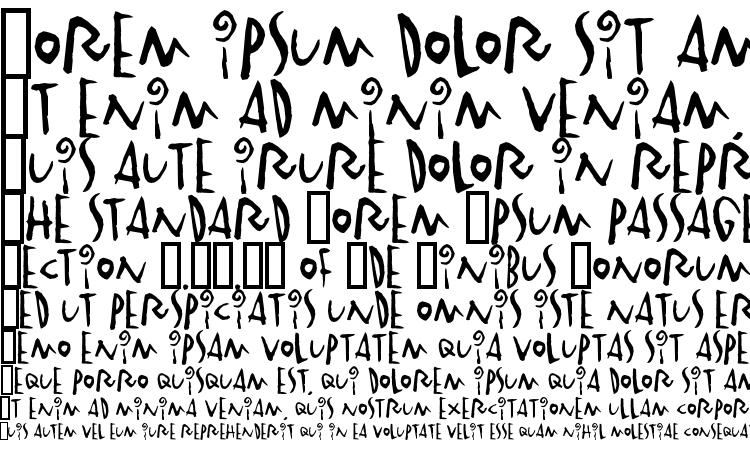 □orem ipsum dolor sit am
□t enim ad minim veniam,
□uis aute irure dolor in repr
□he standard □orem □psum passage
□ection □.□□.□□ of □de □inibus □onorum
□ed ut perspiciatis unde omnis iste natus er
□emo enim ipsam voluptatem quia voluptas sit aspe
□eque porro quisquam est, qui dolorem ipsum quia dolor sit am
□t enim ad minima veniam, quis nostrum exercitationem ullam corpor
□uis autem vel eum iure reprehenderit qui in ea voluptate velit esse quam nihil molestiae consequat